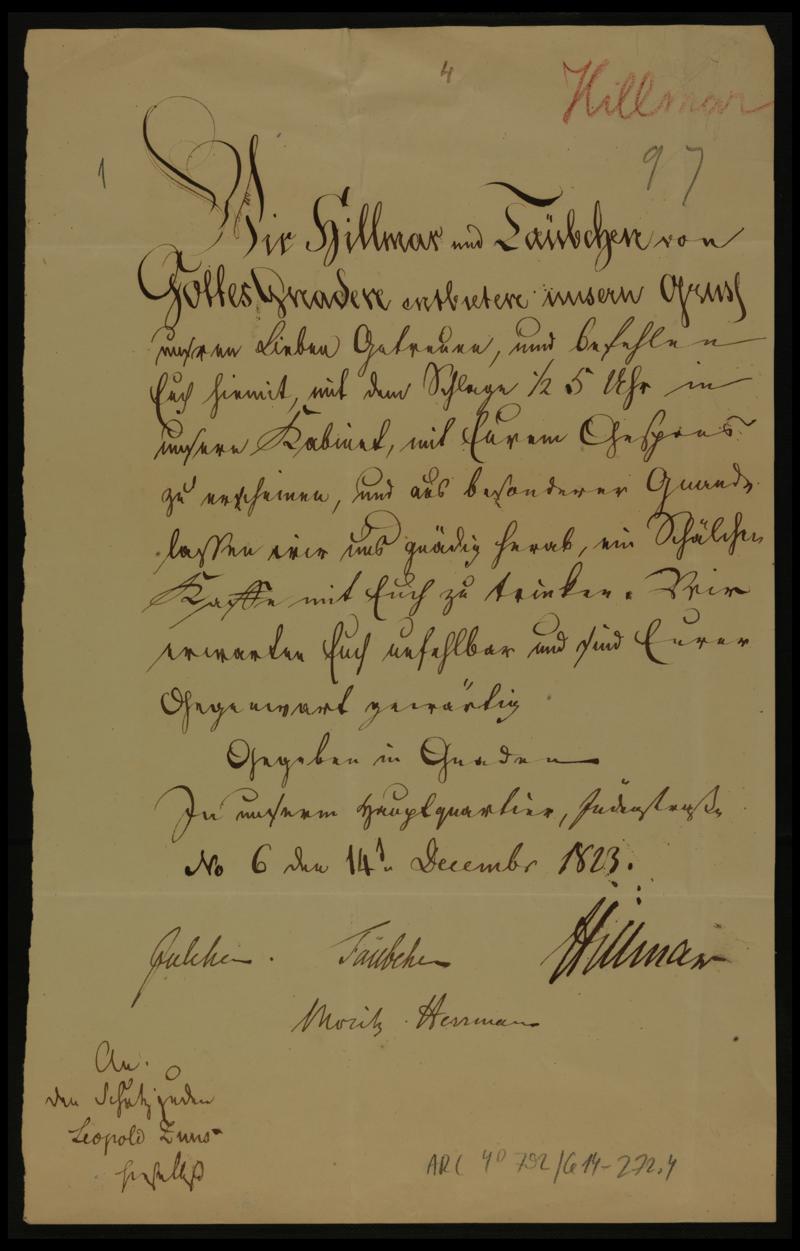 4
Hillmar
97
1
Wir Hillmar und Täubchen von
Gottes Gnaden entbieten unsern Gruß
unsren Lieben Getreuen, und befehlen
Euch hiemit, mit dem Schlage ½ 5 Uhr in
unsern Kabinet, mit Eurem Gespons
zu erscheinen, und aus besonderer Gnande
lassen wir uns gnädig herab, ein Schälchen
Kaffe mit Euch zu trinken. Wir
erwarten Euch unfehlbar und sind Eurer
Gegenwart gewärtig
Gegeben in Gnaden
In unserm Hauptquartier, Judenstraße
No 6 den 14t. Decembr 1823.
Julchen. Täubchen Hillmar
Moritz Herrmann
An.
den Schutzjuden
Leopold Zunz
hieselbst
ARC 4° 792/G14-272.4